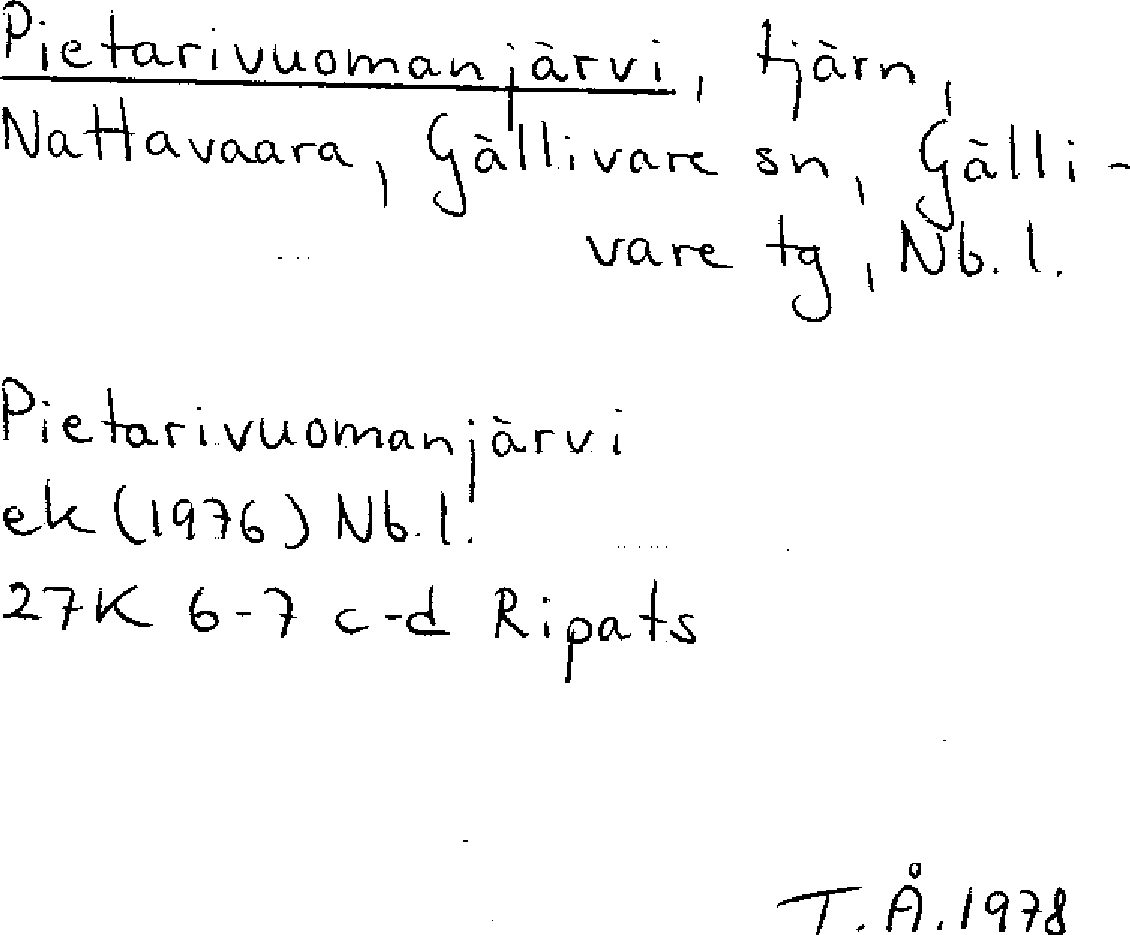 Pietarivuomanjärvi, tjärn,
Nattavaara, Gällivare sn, Gälli-
vare tg, Nb. l.
Pietarivuomanjärvi
ek (1976) Nb. l.
27K 6-7 c-d Ripats
T. Å. 1978